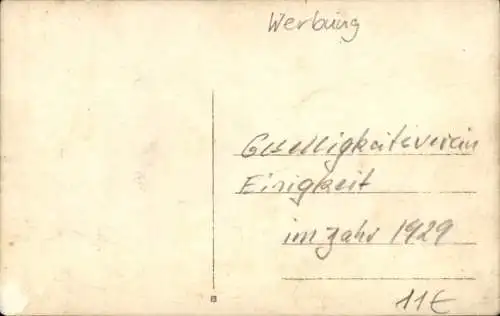 Werbung
Geselligkeitsverein
Einigkeit
im Jahr 1929
11€